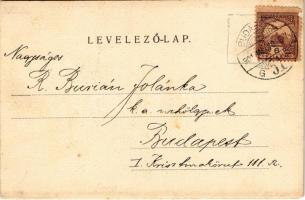 LEVELEZŐ-LAP.
Nagyságos
R. Burián Jolánka
k.a. urhölgynek
Budapest
I. Krisztina körút 111. sz.